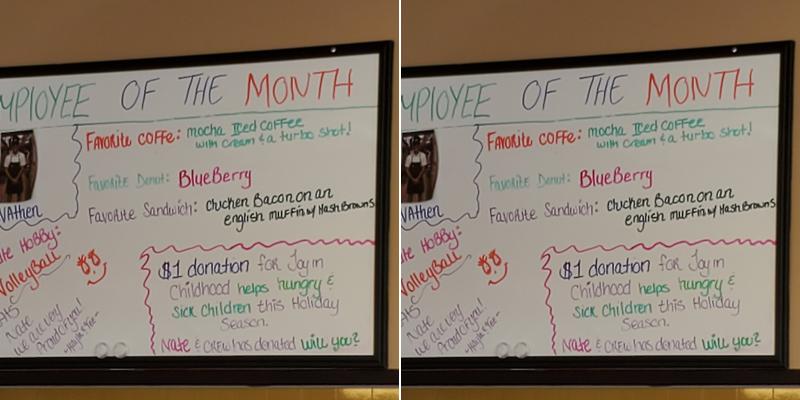 MPLOYEE OF THE MONTH
FAVORitE COFFe: mocha Iced COFFEE
with cream & a turbo shot!
Favorite Donut: BlueBerry
Favorite Sandwich: Chicken Bacon on an
english muffin w/ Hash Browns
VAthen
te HOBBY:
VolleyBall
Nate
we are very
Proud of you!
$1 donation for Joy in
Childhood helps hungry &
sick children this Holiday
Season.
Nate & CREW has donated will you?
MPLOYEE OF THE MONTH
FAVORitE COFFe: mocha Iced COFFEE
with cream & a turbo shot!
Favorite Donut: BlueBerry
Favorite Sandwich: Chicken Bacon on an
english muffin w/ Hash Browns
VAthen
te HOBBY:
VolleyBall
Nate
we are very
Proud of you!
$1 donation for Joy in
Childhood helps hungry &
sick children this Holiday
Season.
Nate & CREW has donated will you?